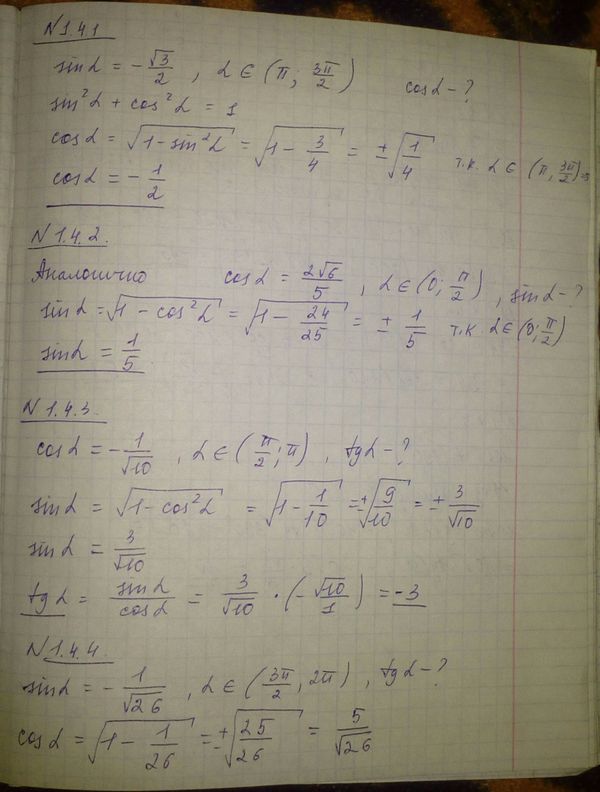 N 1.4.1
sin α = -√3/2 , α ∈ (π; 3π/2) cos α - ?
sin²α + cos²α = 1
cos α = √(1-sin²α) = √(1 - 3/4) = ±√(1/4) т.к. α ∈ (π, 3π/2) =>
cos α = - 1/2
N 1.4.2.
Аналогично cos α = 2√6/5 , α ∈ (0; π/2) , sin α - ?
sin α = √(1 - cos²α) = √(1 - 24/25) = ± 1/5 т.к. α ∈ (0; π/2)
sin α = 1/5
N 1.4.3.
cos α = - 1/√10 , α ∈ (π/2; π) , tg α - ?
sin α = √(1-cos²α) = √(1 - 1/10) = ±√(9/10) = ± 3/√10
sin α = 3/√10
tg α = sin α/cos α = 3/√10 · (- √10/1) = -3
N 1.4.4.
sin α = - 1/√26 , α ∈ (3π/2, 2π) , tg α - ?
cos α = √(1 - 1/26) = ±√(25/26) = 5/√26